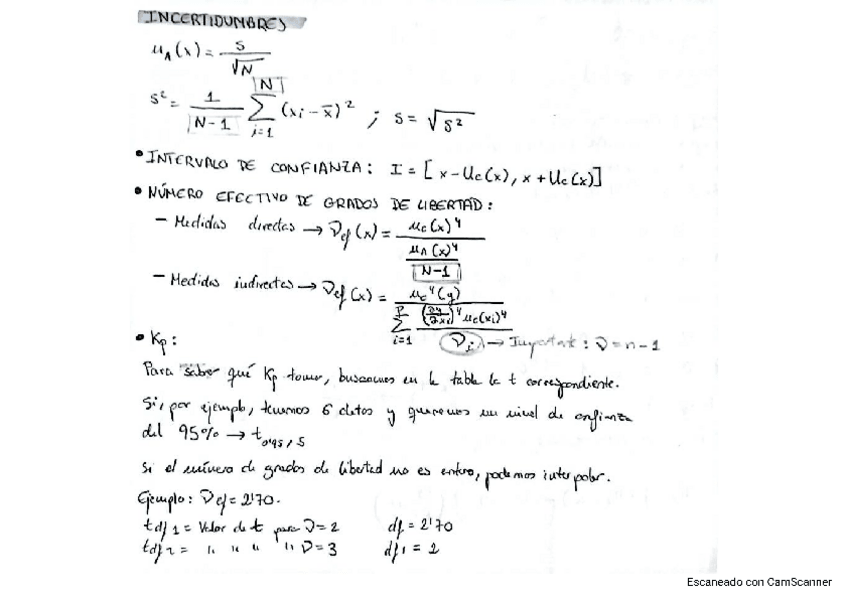 INCERTIDUMBRES
u_A(x) = s / √N
s² = 1/(N-1) ∑_{i=1}^{N} (xi - x̄)² ; s = √s²
• INTERVALO DE CONFIANZA: I = [x - Uc(x), x + Uc(x)]
• NÚMERO EFECTIVO DE GRADOS DE LIBERTAD:
- Medidas directas → ν_ef(x) = uc(x)⁴ / (u_A(x)⁴ / (N-1))
- Medidas indirectas → ν_ef(x) = uc⁴(y) / ∑_{i=1}^{P} ((∂y/∂xi)⁴ uc(xi)⁴ / νi) → Important: ν = n-1
• Kp:
Para saber qué Kp tomar, buscamos en la tabla la t correspondiente.
Si, por ejemplo, tenemos 6 datos y queremos un nivel de confianza
del 95% → t_{0'95, 5}
Si el número de grados de libertad no es entero, podemos interpolar.
Ejemplo: ν_ef = 2'70.
tdf1 = Valor de t para ν=2 df = 2'70
tdf2 = " " " " ν=3 df1 = 2
Escaneado con CamScanner